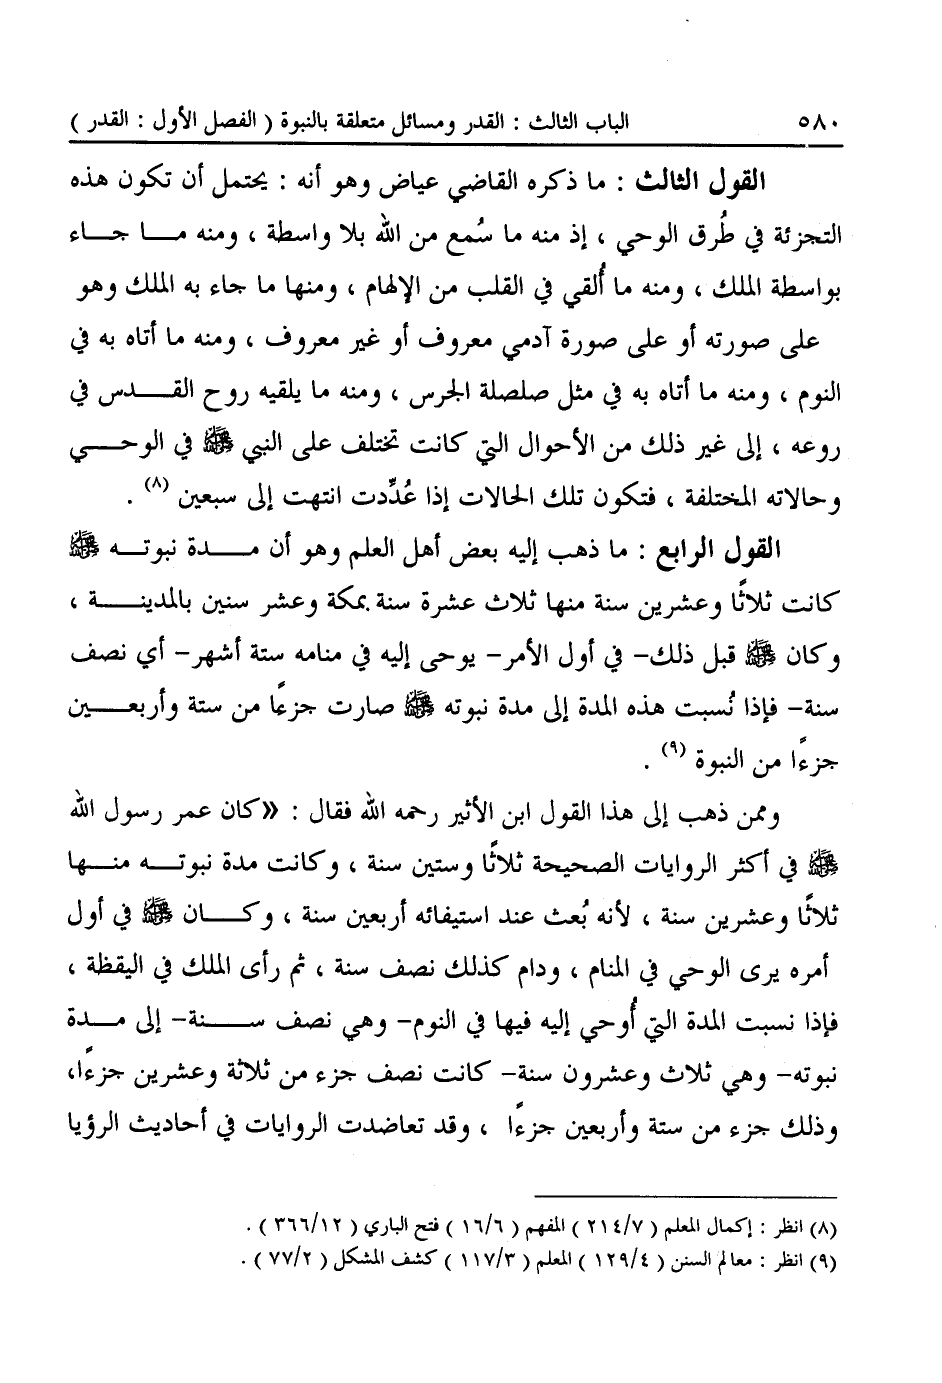 ٥٨٠ الباب الثالث : القدر ومسائل متعلقة بالنبوة ( الفصل الأول : القدر )
القول الثالث : ما ذكره القاضي عياض وهو أنه : يحتمل أن تكون هذه
التجزئة في طُرق الوحي ، إذ منه ما سُمع من الله بلا واسطة ، ومنه مـا جـاء
بواسطة الملك ، ومنه ما أُلقي في القلب من الإلهام ، ومنها ما جاء به الملك وهو
على صورته أو على صورة آدمي معروف أو غير معروف ، ومنه ما أتاه به في
النوم ، ومنه ما أتاه به في مثل صلصلة الجرس ، ومنه ما يلقيه روح القـدس في
روعه ، إلى غير ذلك من الأحوال التي كانت تختلف على النبي ﷺ في الوحـي
وحالاته المختلفة ، فتكون تلك الحالات إذا عُدِّدت انتهت إلى سبعين (٨) .
القول الرابع : ما ذهب إليه بعض أهل العلم وهو أن مـدة نبوتـه ﷺ
كانت ثلاثًا وعشرين سنة منها ثلاث عشرة سنة بمكة وعشر سنين بالمدينـة ،
وكان ﷺ قبل ذلك- في أول الأمر- يوحى إليه في منامه ستة أشهر- أي نصف
سنة- فإذا نُسبت هذه المدة إلى مدة نبوته ﷺ صارت جزءًا من ستة وأربعـين
جزءًا من النبوة (٩) .
وممن ذهب إلى هذا القول ابن الأثير رحمه الله فقال : «كان عمر رسول الله
ﷺ في أكثر الروايات الصحيحة ثلاثًا وستين سنة ، وكانت مدة نبوتـه منـها
ثلاثًا وعشرين سنة ، لأنه بُعث عند استيفائه أربعين سنة ، وكـان ﷺ في أول
أمره يرى الوحي في المنام ، ودام كذلك نصف سنة ، ثم رأى الملك في اليقظة ،
فإذا نسبت المدة التي أُوحي إليه فيها في النوم- وهي نصف سـنة- إلى مـدة
نبوته- وهي ثلاث وعشرون سنة- كانت نصف جزء من ثلاثة وعشرين جزءًا،
وذلك جزء من ستة وأربعين جزءًا ، وقد تعاضدت الروايات في أحاديث الرؤيا
(٨) انظر : إكمال المعلم ( ٢١٤/٧ ) المفهم ( ١٦/٦ ) فتح الباري ( ٣٦٦/١٢ ) .
(٩) انظر : معالم السنن ( ١٢٩/٤ ) المعلم ( ١١٧/٣ ) كشف المشكل ( ٧٧/٢ ) .